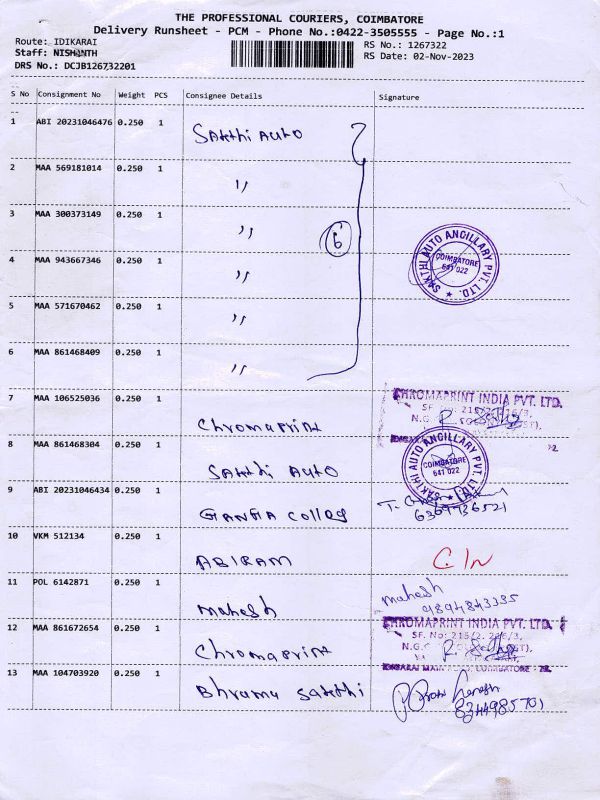 THE PROFESSIONAL COURIERS, COIMBATORE
Delivery Runsheet - PCM - Phone No.:0422-3505555 - Page No.:1
Route: IDIKARAI
RS No.: 1267322
Staff: NISHANTH
RS Date: 02-Nov-2023
DRS No.: DCJB126732201
S No Consignment No Weight PCS Consignee Details Signature
1 ABI 20231046476 0.250 1 Sakthi Auto
2 MAA 569181014 0.250 1 ,,
3 MAA 300373149 0.250 1 ,,
6
SAKTHI AUTO ANCILLARY PVT. LTD.
COIMBATORE
641 022
4 MAA 943667346 0.250 1 ,,
5 MAA 571670462 0.250 1 ,,
6 MAA 861468409 0.250 1 ,,
CHROMAPRINT INDIA PVT. LTD.
7 MAA 106525036 0.250 1 Chromaprint
8 MAA 861468304 0.250 1 Sakthi Auto
SAKTHI AUTO ANCILLARY PVT. LTD.
COIMBATORE
641 022
9 ABI 20231046434 0.250 1 Ganga Colleg
6369736521
10 VKM 512134 0.250 1 ABIRAM C/N
11 POL 6142871 0.250 1 Mahesh
mahesh
9894843335
CHROMAPRINT INDIA PVT. LTD.
SF. No: 215/2, 216/3,
12 MAA 861672654 0.250 1 Chromaprint
13 MAA 104703920 0.250 1 Bhramu Sakthi
8344985701